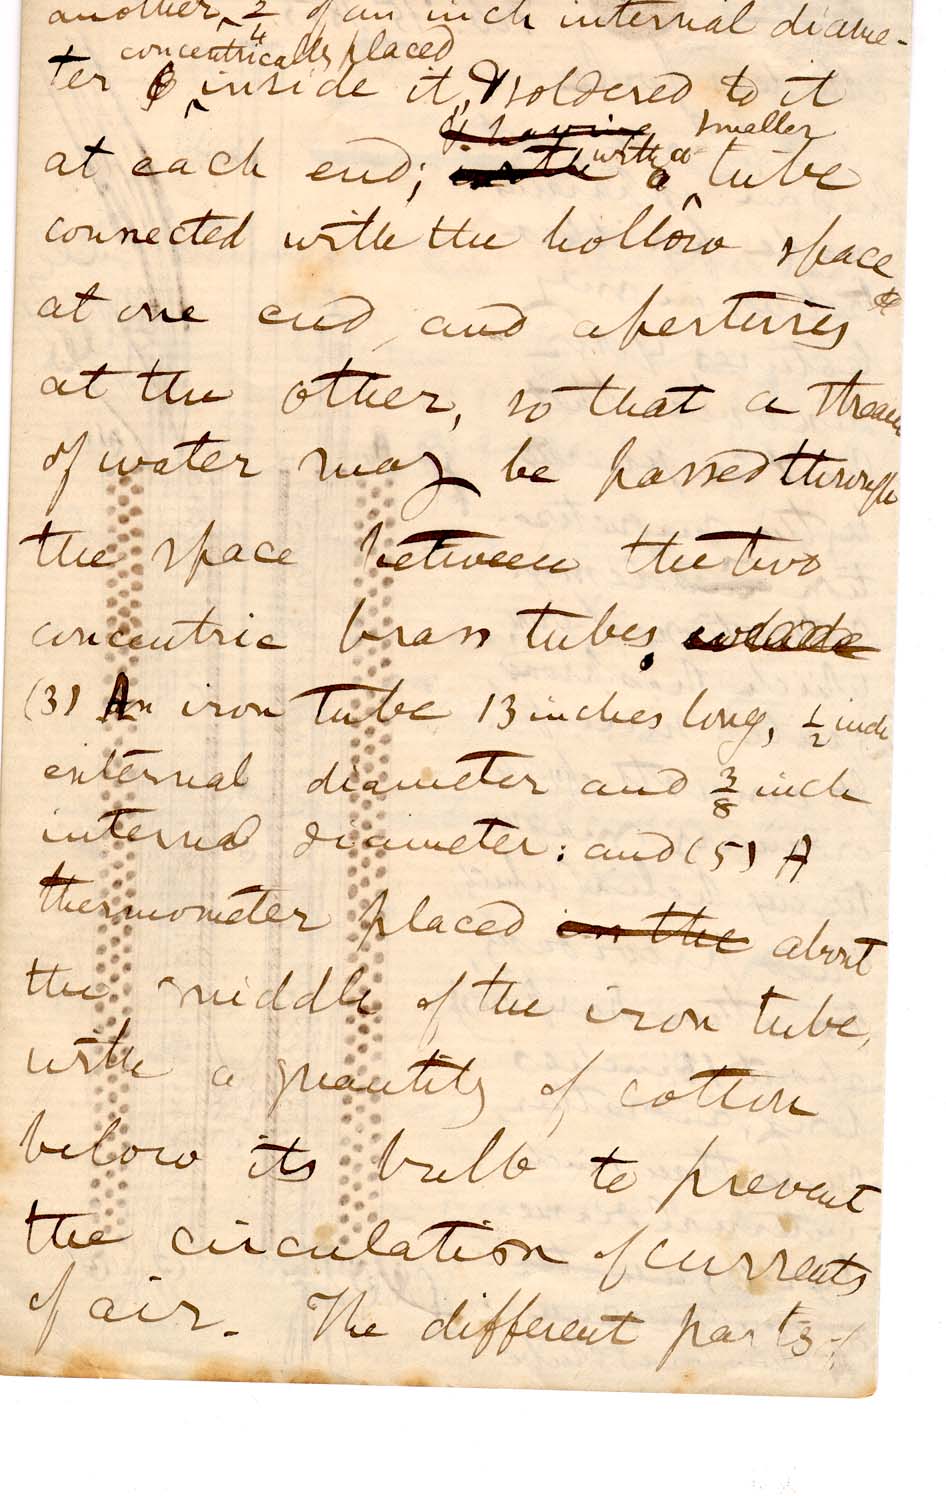 another, 3/4 of an inch internal diame-
concentrically placed
ter inside it, & soldered to it
& having smaller
at each end; with with a a tube
connected with the hollow space
at one end and apertures
at the other, so that a stream
of water may be passed through
the space between the two
concentric brass tubes.
(3) An iron tube 13 inches long, 1/2 inch
external diameter and 3/8 inch
internal diameter: and (5) A
thermometer placed in the about
the middle of the iron tube,
with a quantity of cotton
below its bulb to prevent
the circulation of currents
of air. The different parts of